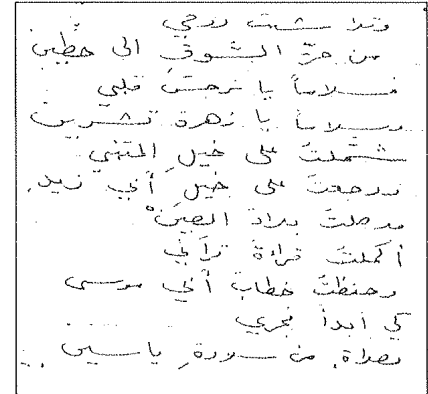 وقد شدت روحي
من حرّ الشوق الى حطين
فسلاماً يا نرجس قلبي
وسلاماً يا زهرة تشرين
على خيل المتنبي
ورجعت على خيل أبي زيد
وصلت بلاد الصين
أكملتُ قراءة قرآني
وحفظتُ خطاب أبي موسى
كي أبدأ فجري
بصلاة من سورة ياسين